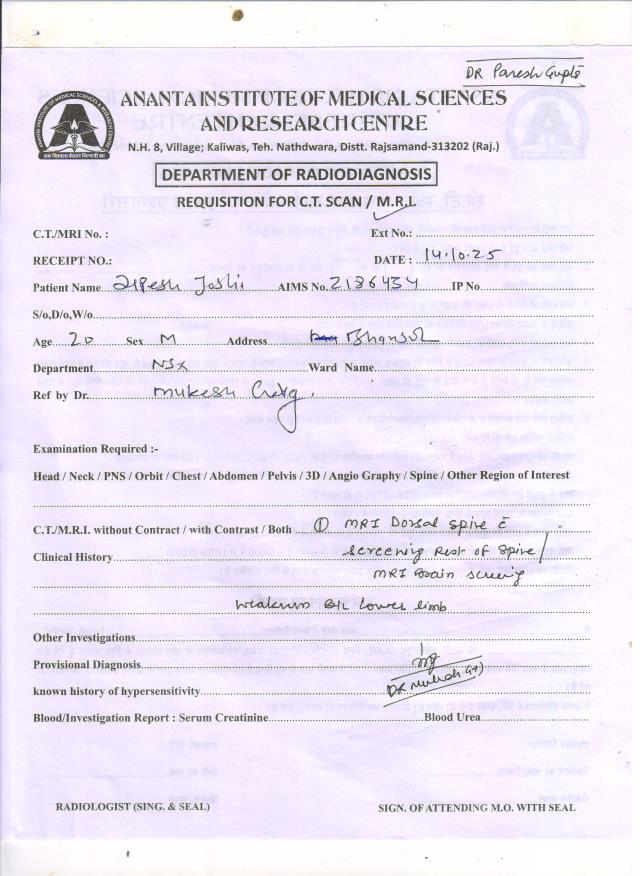 DR Paresh Gupte
ANANTA INSTITUTE OF MEDICAL SCIENCES
AND RESEARCH CENTRE
N.H. 8, Village; Kaliwas, Teh. Nathdwara, Distt. Rajsamand-313202 (Raj.)
DEPARTMENT OF RADIODIAGNOSIS
REQUISITION FOR C.T. SCAN / M.R.I.
C.T./MRI No. : Ext No.:
RECEIPT NO.: DATE : 14.10.25
Patient Name Joshi AIMS No. 2186434 IP No
S/o,D/o,W/o
Age 20 Sex M Address
Department NSx Ward Name
Ref by Dr. Mukesh
Examination Required :-
Head / Neck / PNS / Orbit / Chest / Abdomen / Pelvis / 3D / Angio Graphy / Spine / Other Region of Interest
C.T./M.R.I. without Contract / with Contrast / Both ① MRI Dorsal Spine c̄
Clinical History screening Rest of Spine/
MRI Brain screening
Weakness B/L lower limb
Other Investigations
Provisional Diagnosis
known history of hypersensitivity DR Mukesh
Blood/Investigation Report : Serum Creatinine Blood Urea
RADIOLOGIST (SING. & SEAL) SIGN. OF ATTENDING M.O. WITH SEAL